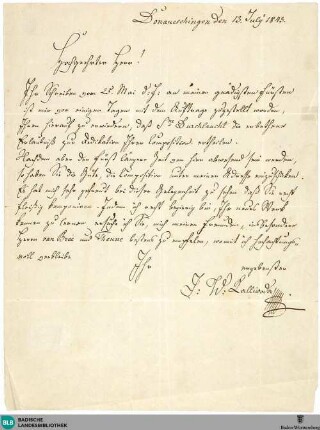 Donaueschingen den 13. July 1843.
Hochgeehrter Herr!
Ihr Schreiben vom 25. Mai d. J. an meinen gnädigsten Fürsten
ist mir vor einigen Tagen mit dem Auftrage zugestellt worden,
Ihnen hierauf zu erwiedern, daß Sr. Durchlaucht die erbethene
Erlaubniß zur Dedikation Ihrer Composition ertheilen.
Nachdem aber der Fürst längere Zeit von hier abwesend sein werden,
so haben Sie die Güte, die Composition unter meiner Adresse einzuschicken.
Es hat mich sehr gefreut bei dieser Gelegenheit zu sehen daß Sie recht
fleißig componieren. Indem ich recht begierig bin Ihr neues Werk
kennen zu lernen ersuche ich Sie, mich meinen Freunden, insbesondere
Herrn van Bree und bestens zu empfehlen, womit ich hochachtungs-
voll verbleibe
Ihr
ergebenster
J. W. Kalliwoda
BLB
BADISCHE
LANDESBIBLIOTHEK
Baden-Württemberg